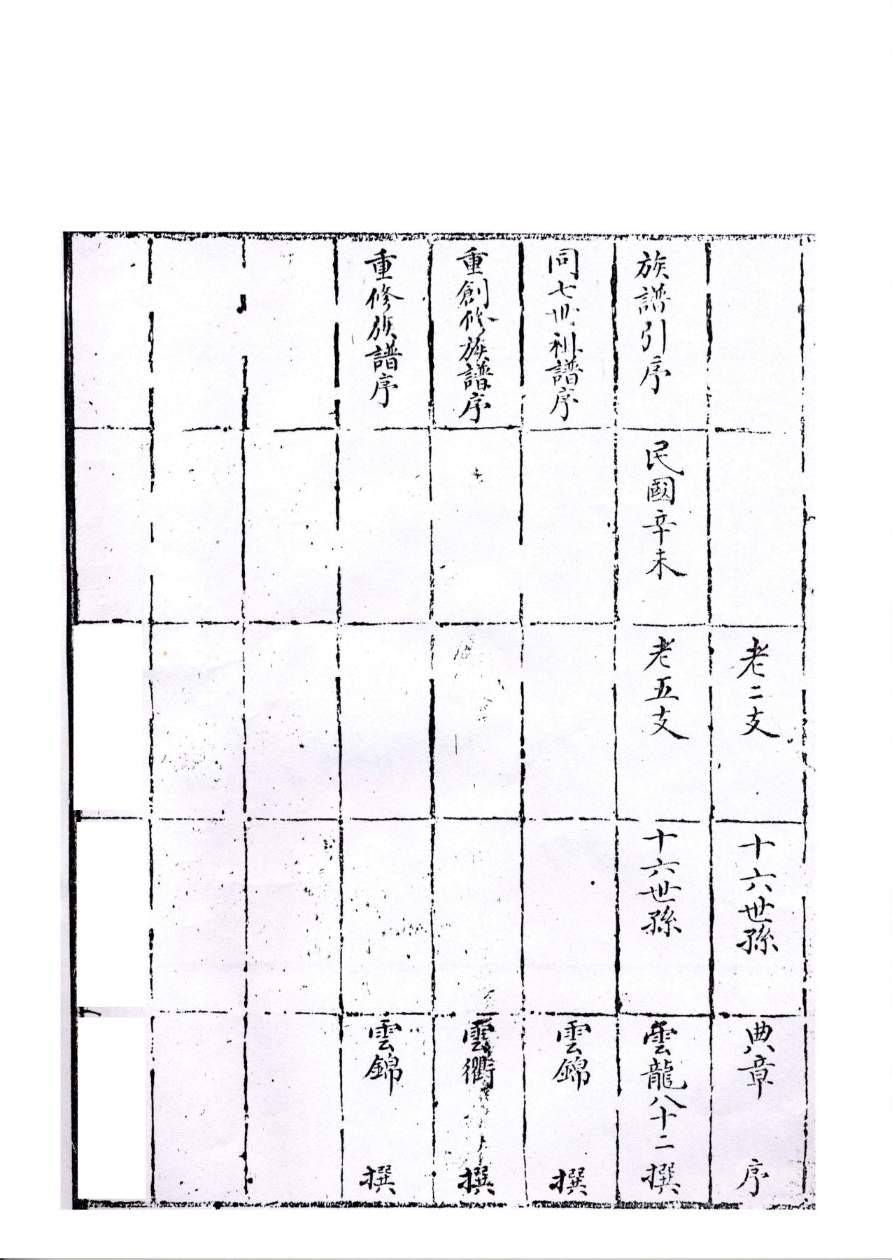 老二支 十六世孫 典章 序
族譜引序 民國辛未 老五支 十六世孫 雲龍八十二 撰
同七世祖譜序 雲錦 撰
重創修族譜序 雲衢 撰
重修族譜序 雲錦 撰